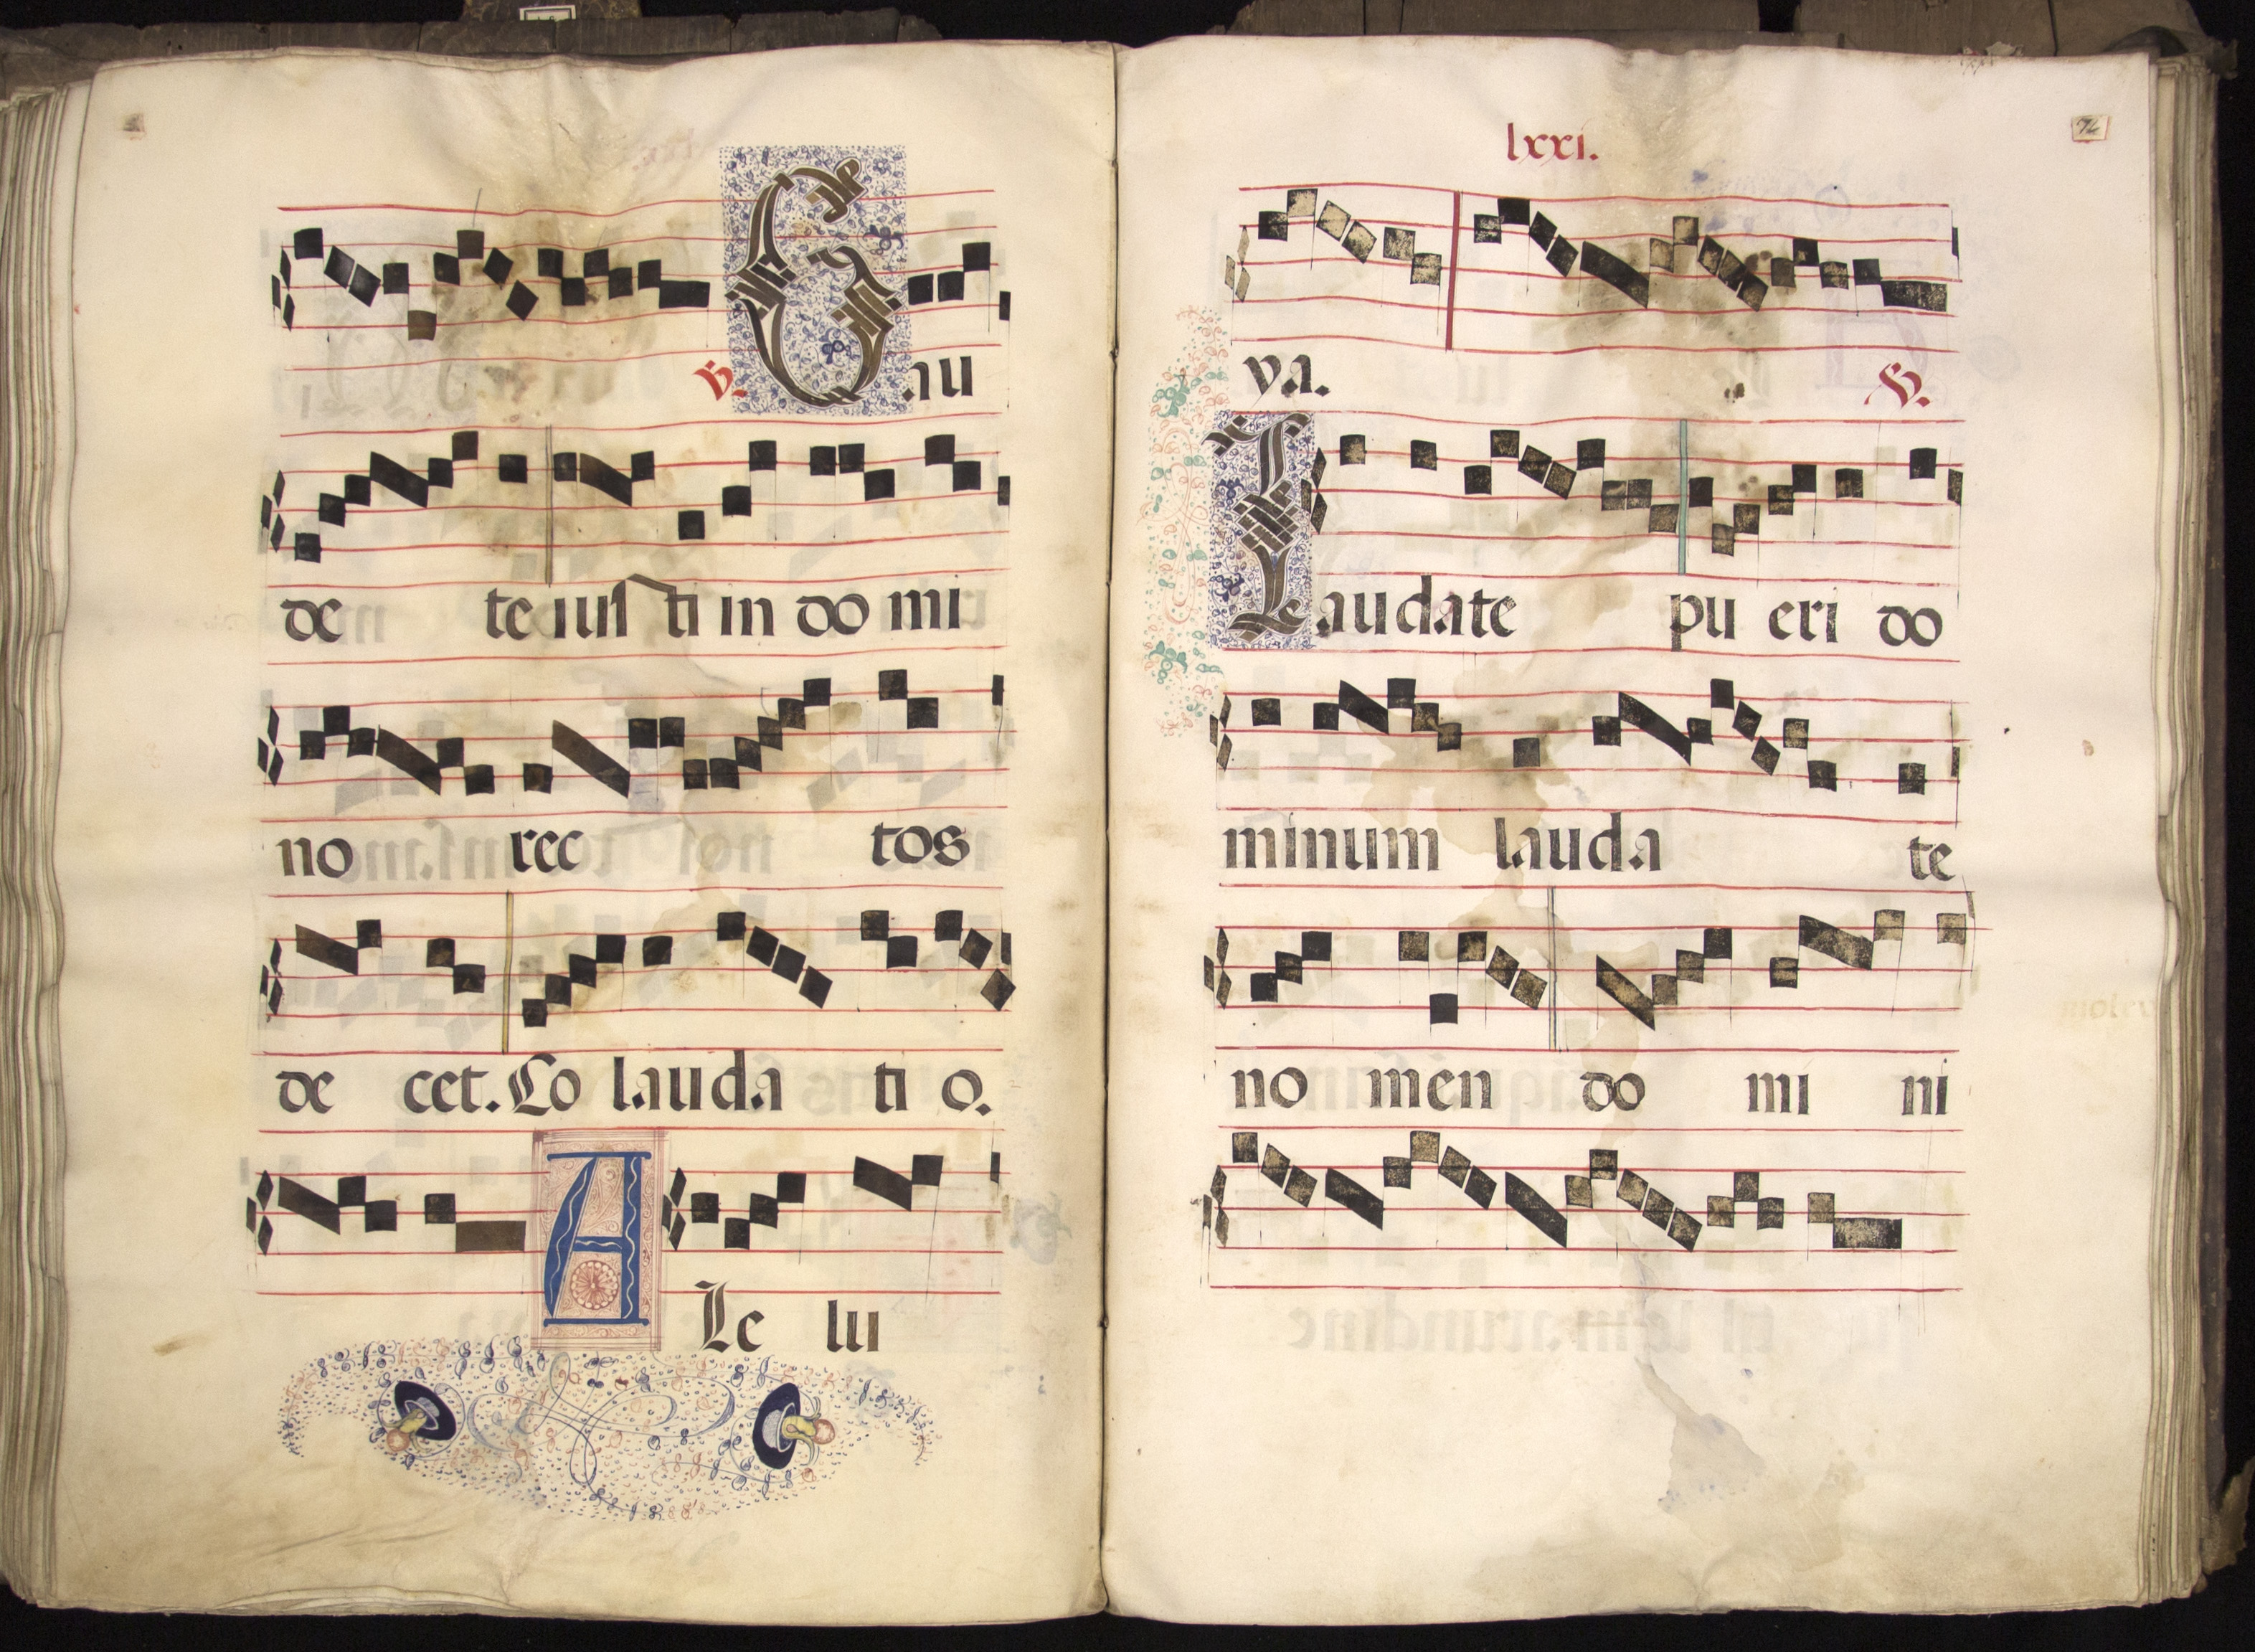 v. Exu
de te ius ti in do mi
no rec tos
de cet. Co lauda ti o.
A Le lu
lxxi.
ya. v.
Laudate pu eri do
minum lauda te
no men do mi ni